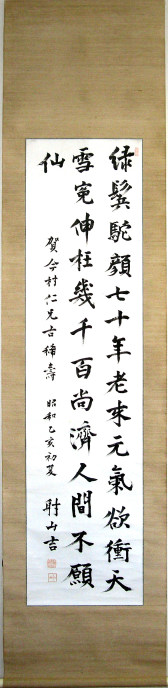 綠鬓駝顔七十年老來元氣欲衝天
雪冤伸枉幾千百尚濟人間不願
仙
賀今村仁兄古稀壽 昭和乙亥初夏 財山吉